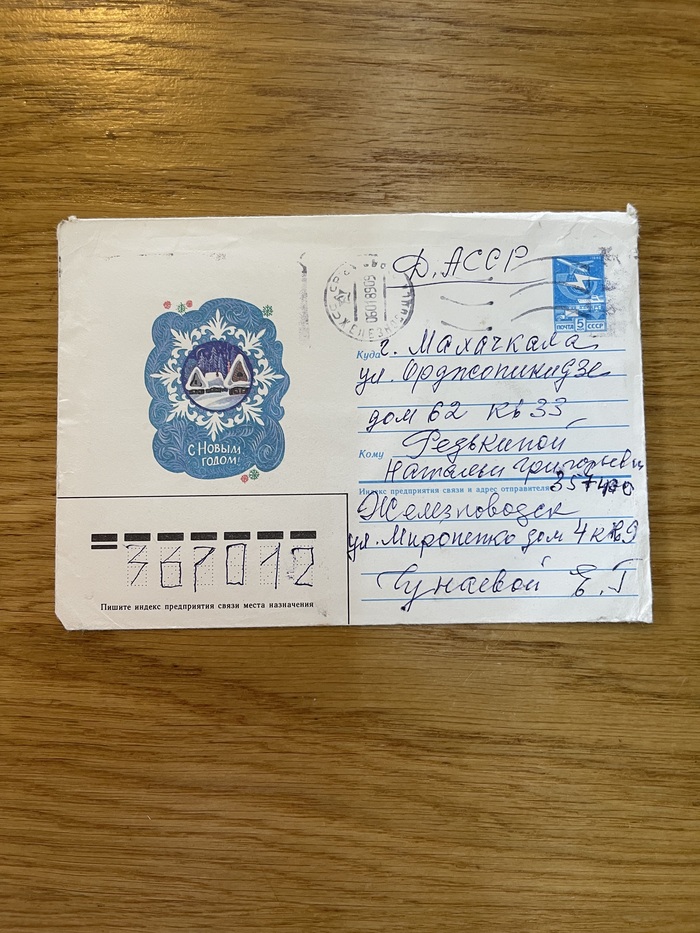 Д. АССР
ПОЧТА 5 СССР
СССР
ЖЕЛЕЗНОВ
06018909
Куда г. Махачкала
ул. Орджоникидзе
дом 62 кв 33
Кому Редькиной
Натальи Григорьевн
Индекс предприятия связи и адрес отправителя 357400
Железноводск
ул. Мироненко дом 4 кв. 9
Чунаевой Е. Г
С НОВЫМ
ГОДОМ!
367012
Пишите индекс предприятия связи места назначения